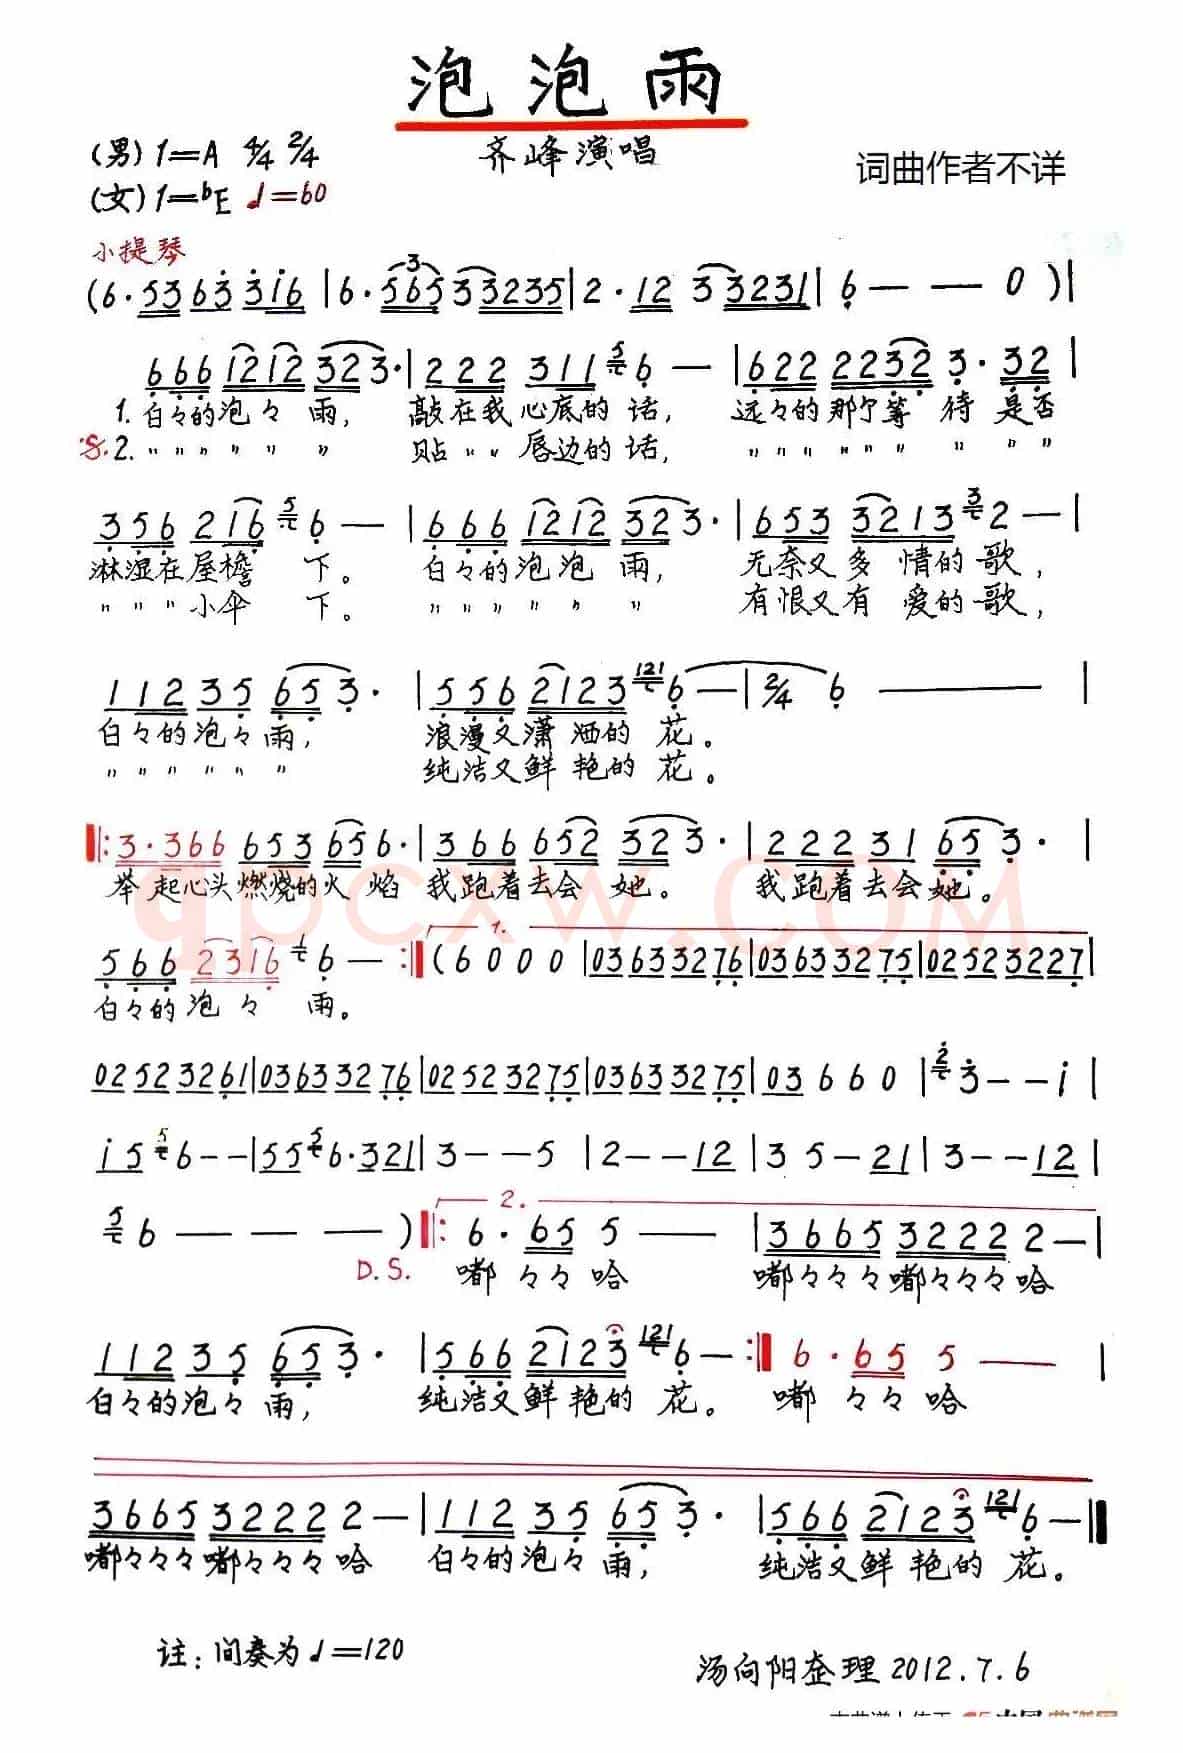 泡泡雨
齐峰演唱
(男)1=A 4/4 2/4
(女)1=bE ♩=60
词曲作者不详
小提琴
(6·53 63 316 |6·565 33235|2·12 33231|6 — — 0 )|
666 1212 323·|222 311 5 6 —|622 2232 3·32|
1. 白々的泡々雨, 敲在我心底的话, 远々的那个等待是否
𝄋2. 〃〃〃〃〃〃 贴〃〃唇边的话, 〃〃〃〃〃〃〃〃〃
356 216 5 6 —|666 1212 323·|653 3213 3 2 —|
淋湿在屋檐下。 白々的泡泡雨, 无奈又多情的歌,
〃〃〃小伞下。 〃〃〃〃〃〃 有恨又有爱的歌,
112 35 653·|556 2123 121 6 —|2/4 6 —|
白々的泡々雨, 浪漫又潇洒的花。
〃〃〃〃〃〃 纯洁又鲜艳的花。
‖: 3·366 653 356·|366 652 323·|222 31 653·|
举起心头燃烧的火焰 我跑着去会她。 我跑着去会她。
1.
566 2316 1 6 — :‖(6 0 0 0|03633276|03633275|02523227|
白々的泡々雨。
02523261|03633276|02523275|03633275|03 6 6 0|2 3--i|
i5 5 6--|55 5 6·321|3--5|2--12|3 5-21|3--12|
2.
5 6 — — — )‖: 6·65 5 —|3665 3222 2—|
D.S. 嘟々々哈 嘟々々々嘟々々々哈
112 35 653·|566 2123 121 6— :‖ 6·65 5 —|
白々的泡々雨, 纯洁又鲜艳的花。 嘟々々哈
3665 3222 2—|112 35 653·|566 2123 121 6—‖
嘟々々々嘟々々々哈 白々的泡々雨, 纯洁又鲜艳的花。
注:间奏为♩=120
汤向阳整理2012.7.6
qpcxw.com